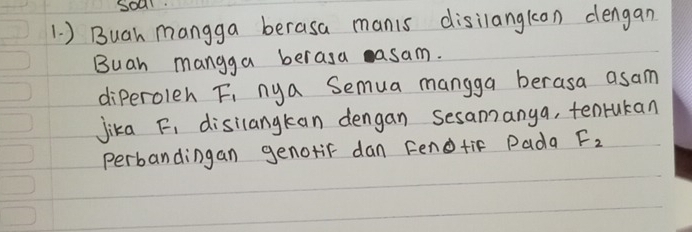 Soal.
1.) Buah mangga berasa manis disilangkan dengan
Buah mangga berasa asam.
diperoleh F₁ nya Semua mangga berasa asam
Jika F₁ disilangkan dengan Sesamanya, tentukan
Perbandingan genotif dan Fenotif Pada F₂